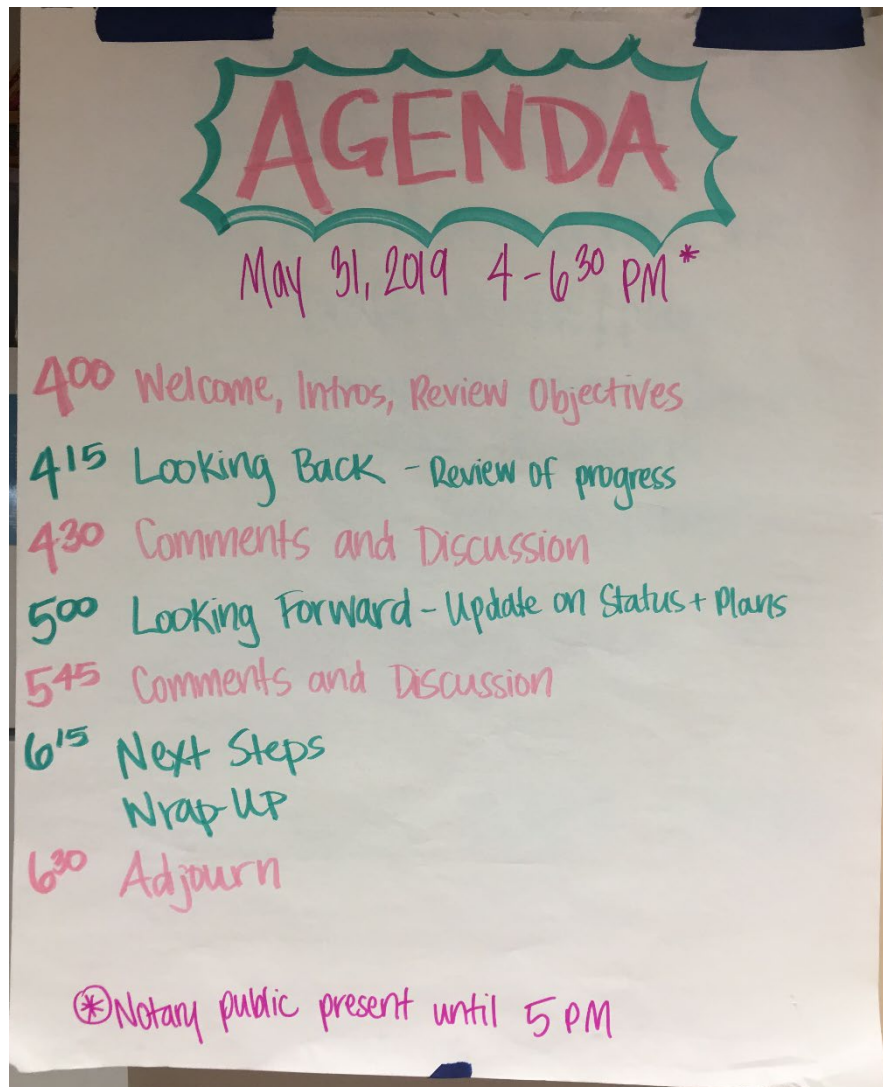 AGENDA
May 31, 2019 4-6³⁰ PM*
4⁰⁰ Welcome, Intros, Review Objectives
4¹⁵ Looking Back - Review of progress
4³⁰ Comments and Discussion
5⁰⁰ Looking Forward - Update on Status + Plans
5⁴⁵ Comments and Discussion
6¹⁵ Next Steps
Wrap-Up
6³⁰ Adjourn
⊛Notary public present until 5 PM